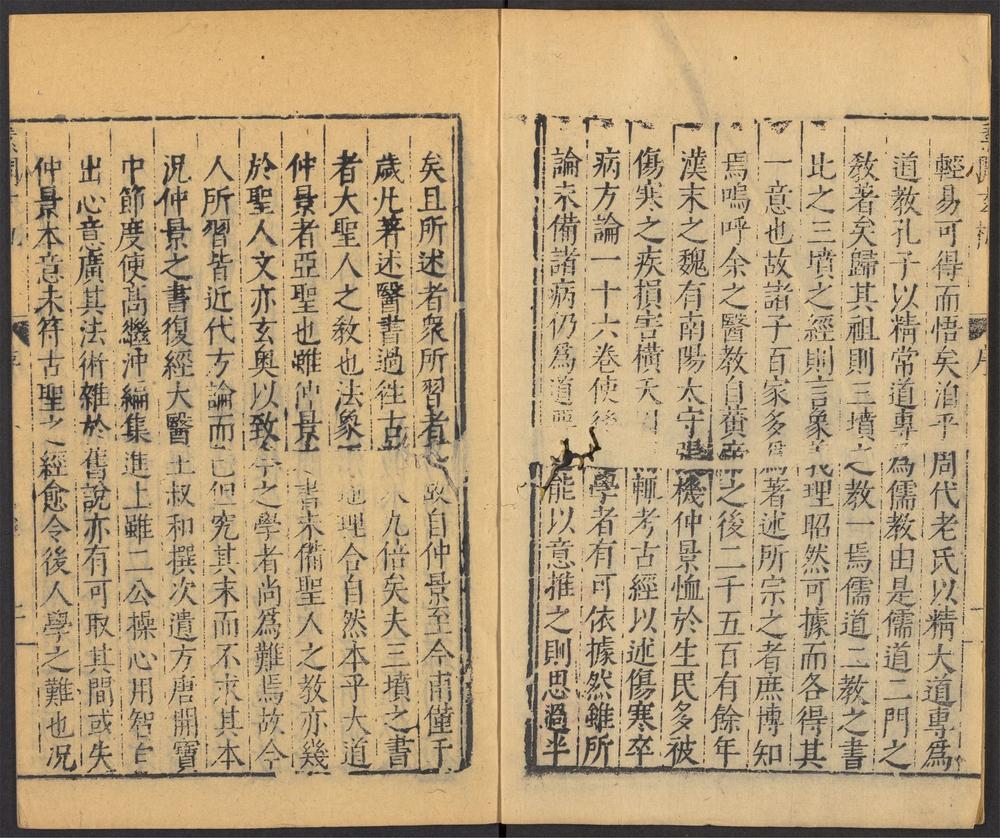 輕易可得而悟矣洎乎周代老氏以精大道專爲
道教孔子以精常道專爲儒教由是儒道二門之
教著矣歸其祖則三墳之教一焉儒道二教之書
比之三墳之經則言象義理昭然可據而各得其
一意也故諸子百家多爲著述所宗之者庶博知
焉嗚呼余之醫教自黃帝之後二千五百有餘年
漢末之魏有南陽太守張機仲景恤於生民多被
傷寒之疾損害橫夭因輒考古經以述傷寒卒
病方論一十六卷使後學者有可依據然雖所
論未備諸病仍爲道要能以意推之則思過半
矣且所述者衆所習者故自仲景至今甫僅千
歲凡著述醫書過往古九倍矣夫三墳之書
者大聖人之教也法象天地理合自然本乎大道
仲景者亞聖也雖仲景之書未備聖人之教亦幾
於聖人文亦玄奧以致今之學者尚爲難焉故今
人所習皆近代方論而已但究其末而不求其本
况仲景之書復經大醫王叔和撰次遺方唐開寶
中節度使高繼沖編集進上雖二公操心用智自
出心意廣其法術雜於舊說亦有可取其間或失
仲景本意未符古聖之經愈令後人學之難也况
序